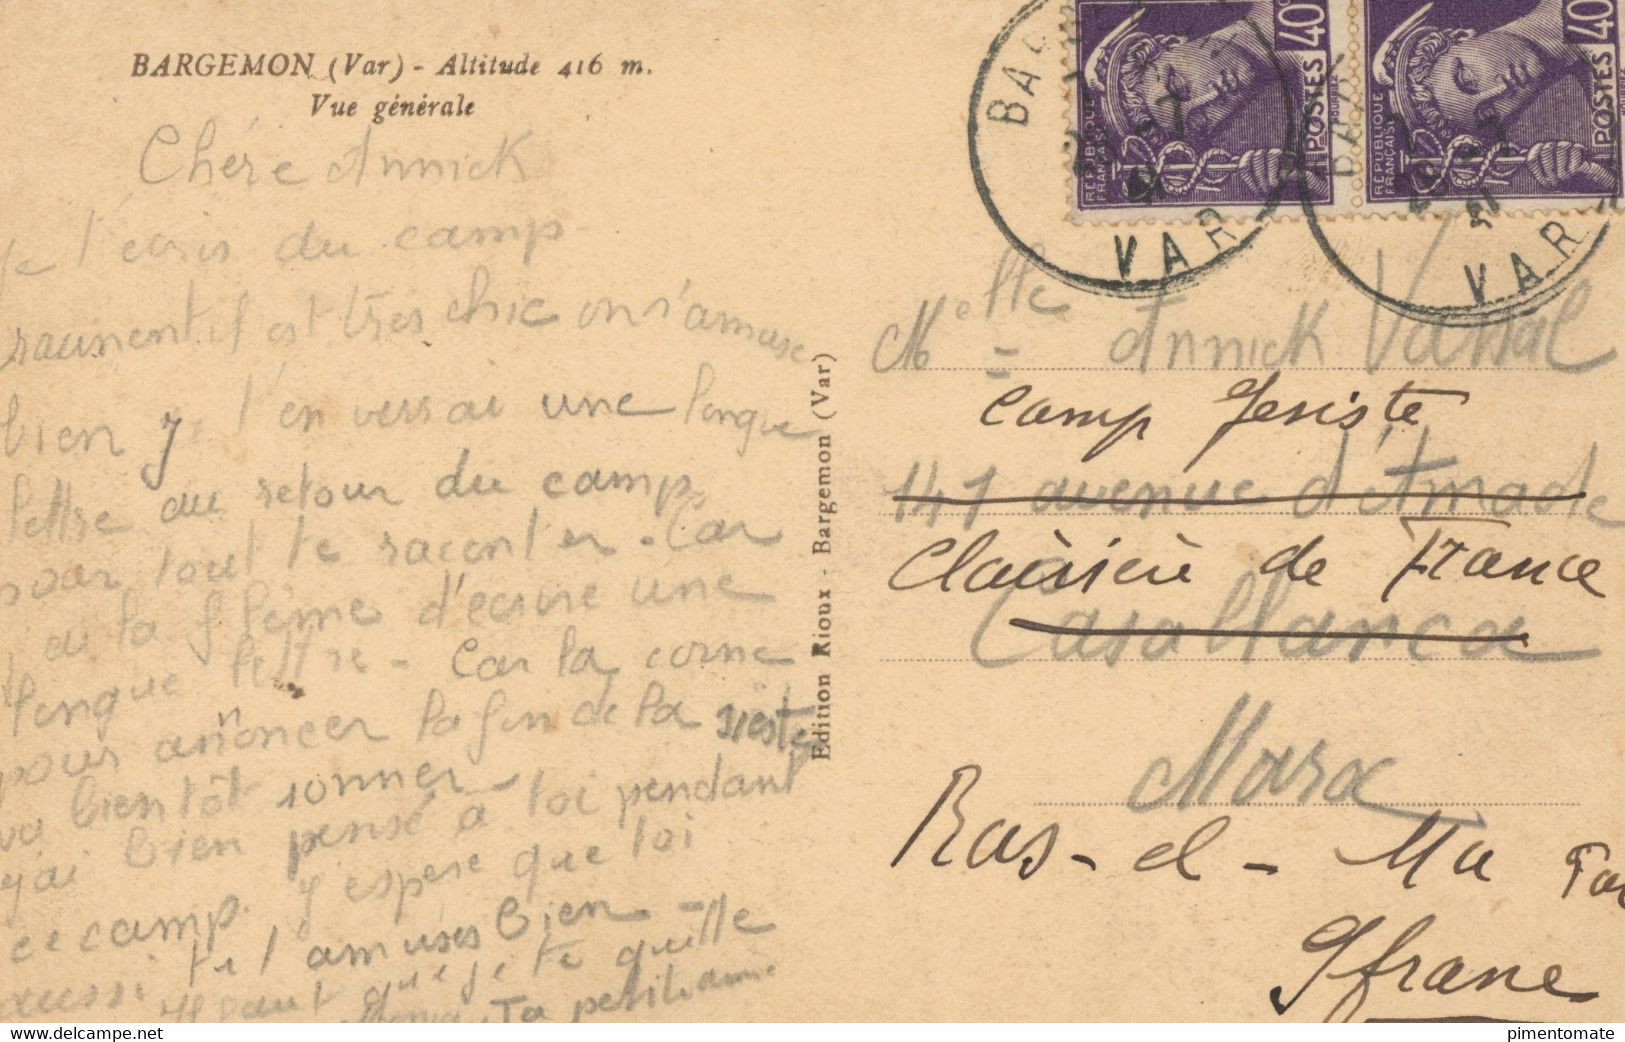 BARGEMON (Var) - Altitude 416 m.
Vue générale
Chére Annick
Je t'écris du camp.
vraiment il est très chic on s'amuse
bien je t'enverrai une longue
lettre au retour du camp
pour tout te raconter. Car
j'ai la flème d'écrire une
longue lettre - Car la corne
pour annoncer la fin de la sieste
va bientôt sonner -
j'ai bien pensé à toi pendant
ce camp. J'espere que toi
aussi tu t'amuses bien -
Il faut que je te quitte
Ta petite amie
Edition Rioux - Bargemon (Var)
RÉPUBLIQUE FRANÇAISE
POSTES 40c
RÉPUBLIQUE FRANÇAISE
POSTES 40
VAR
VAR
Melle = Annick Vassal
Camp
141 avenue d'Amade
de France
Casablanca
Maroc
Ras-el-Ma par
Ifrane
https://www.delcampe.net
pimentomate